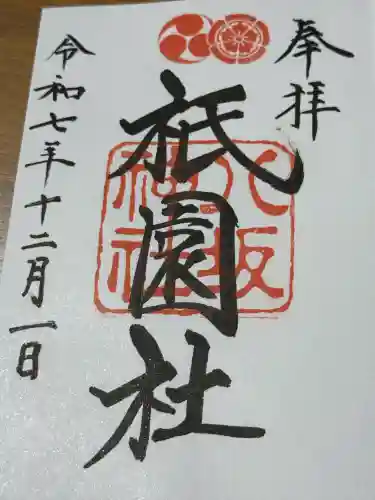 奉拝
八坂
神社
祇園社
令和七年十二月一日